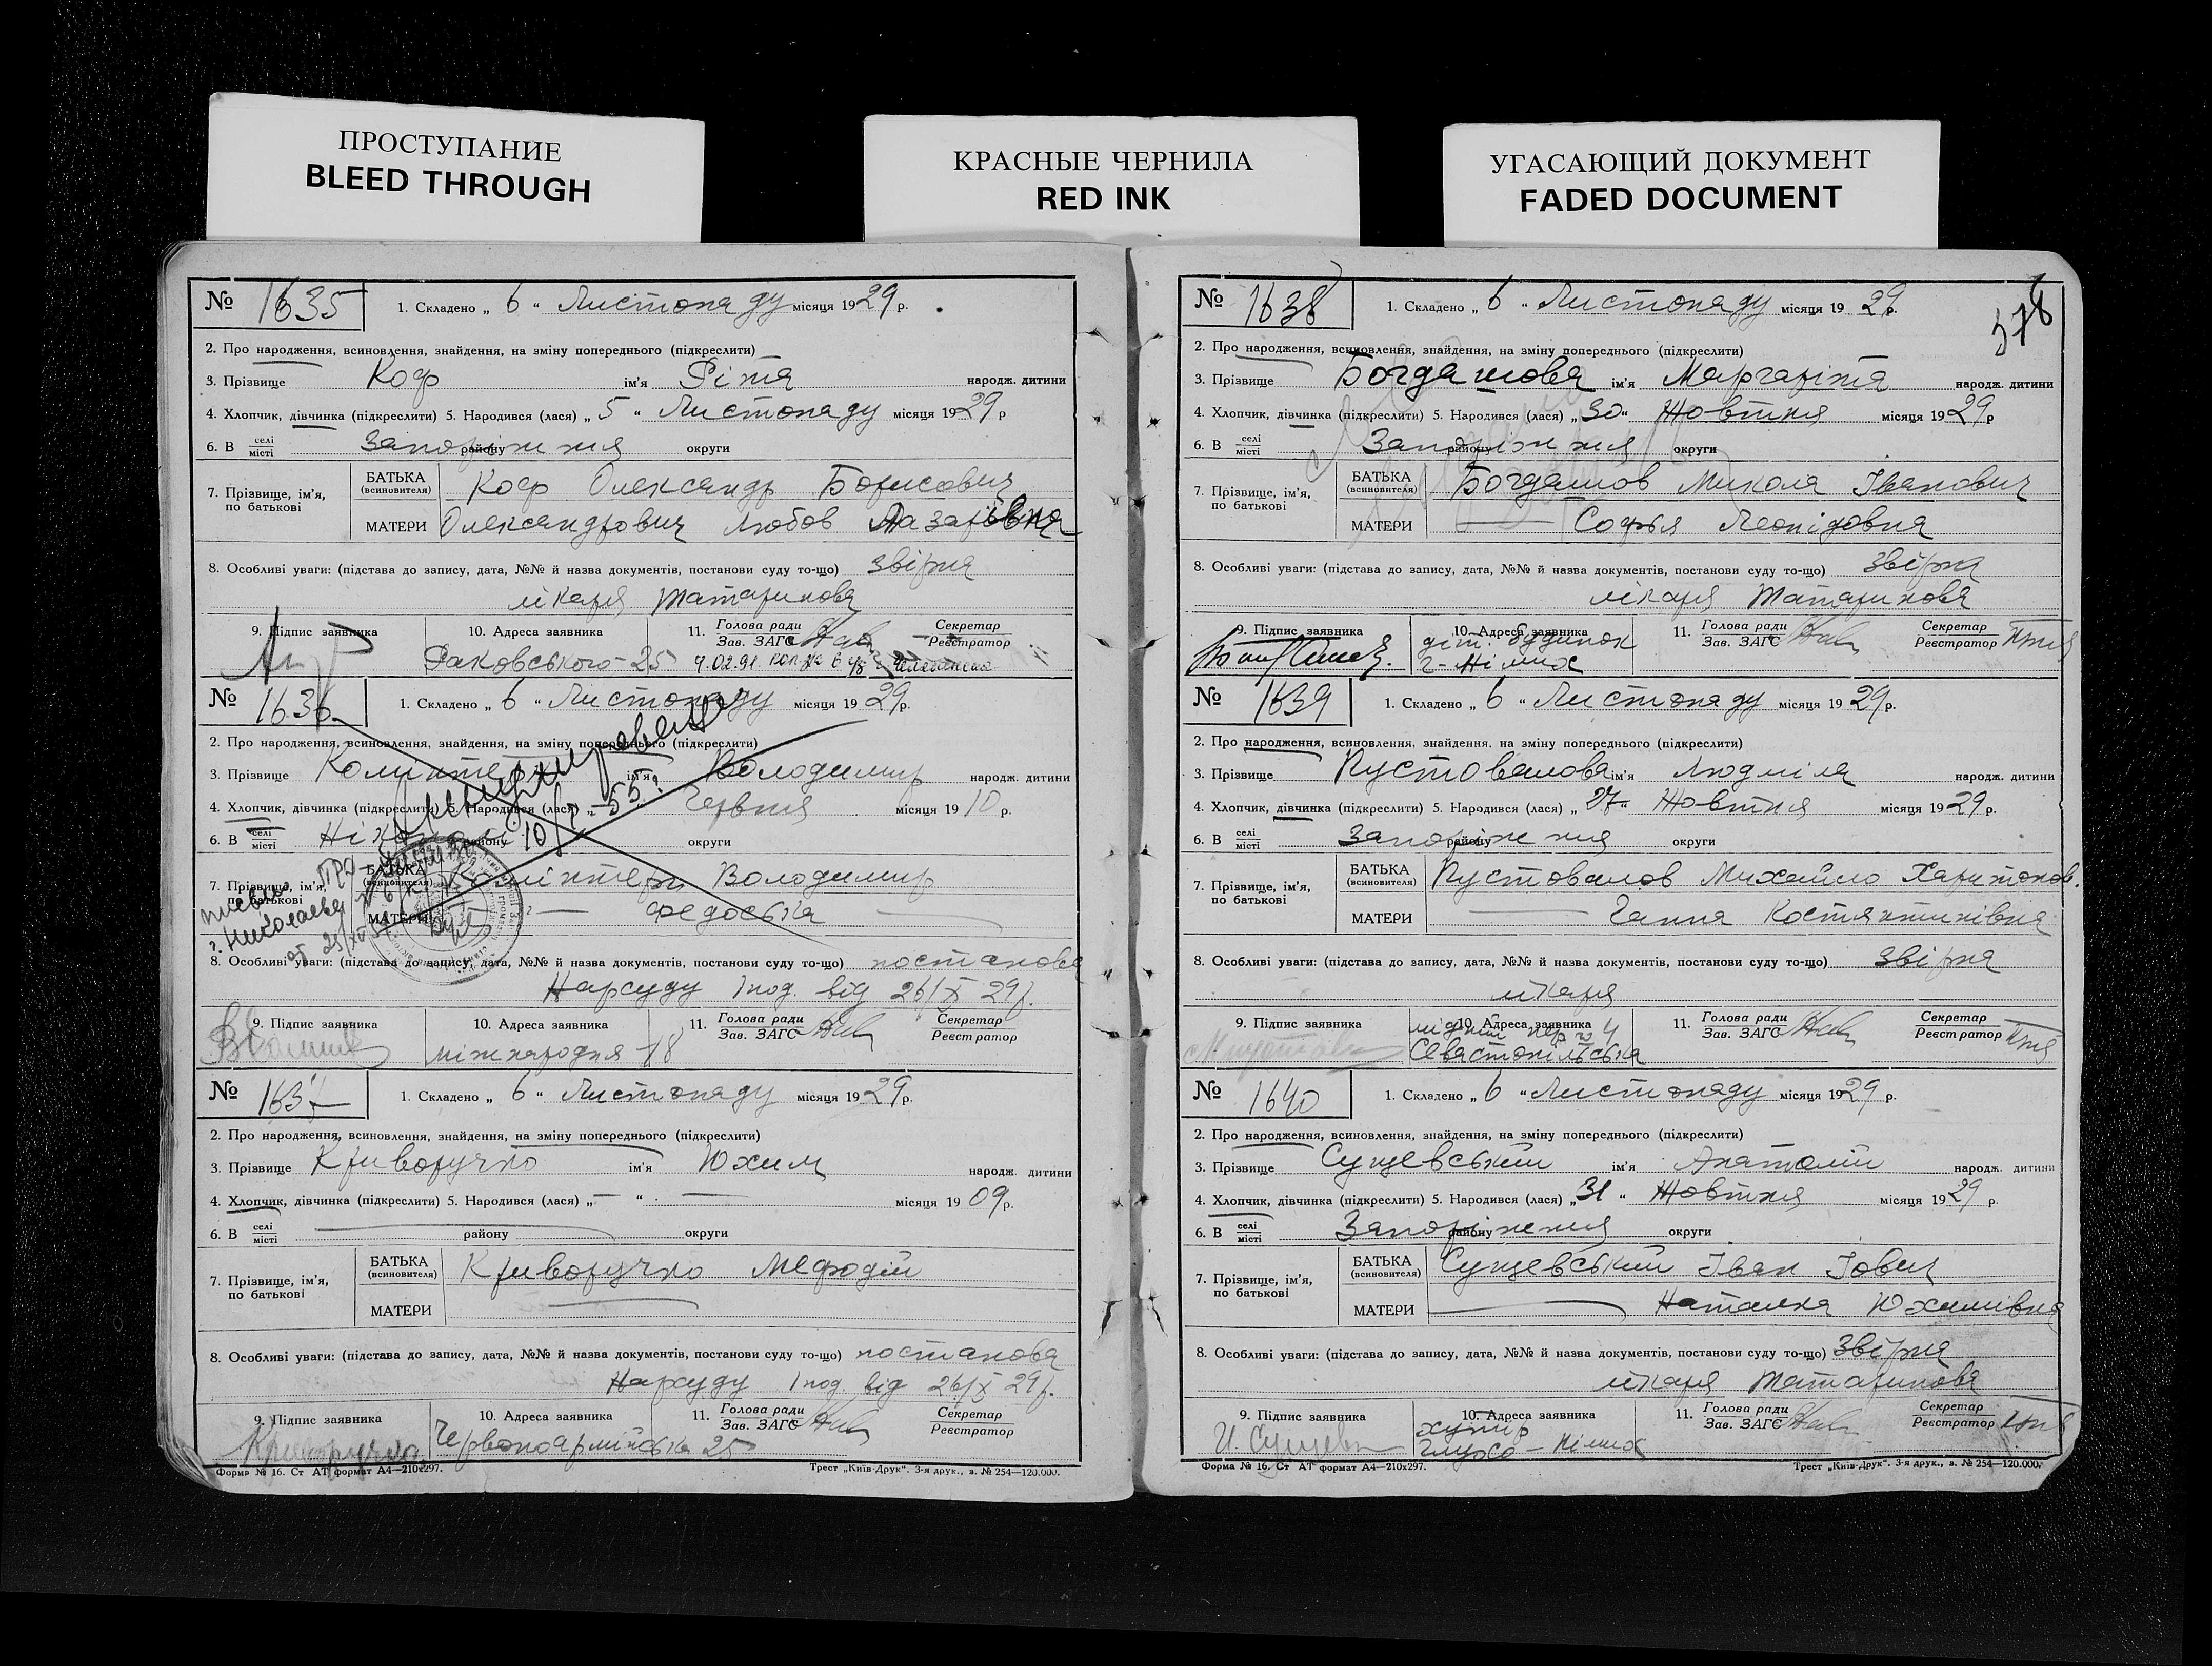 ПРОСТУПАНИЕ
BLEED THROUGH
КРАСНЫЕ ЧЕРНИЛА
RED INK
УГАСАЮЩИЙ ДОКУМЕНТ
FADED DOCUMENT
№ 1635 1. Складено „ 6 “ Листопаду місяця 1929 р.
2. Про народження, всиновлення, знайдення, на зміну попереднього (підкреслити)
3. Прізвище Коф ім'я Ріта народж. дитини
4. Хлопчик, дівчинка (підкреслити) 5. Народився (лася) „ 5 “ Листопаду місяця 1929 р
6. В селі місті Запоріжжя району округи
7. Прізвище, ім'я, по батькові
БАТЬКА (всиновителя) Коф Олександр Борисович
МАТЕРИ Олександрович Любов Лазарівна
8. Особливі уваги: (підстава до запису, дата, №№ й назва документів, постанови суду то-що) звірка
лікаря Татаринова
9. Підпис заявника 10. Адреса заявника 11. Голова ради Зав. ЗАГС Секретар Реєстратор
Раковського-25
№ 1636 1. Складено „ 6 “ Листопаду місяця 1929 р.
2. Про народження, всиновлення, знайдення, на зміну попереднього (підкреслити)
3. Прізвище ім'я Володимир народж. дитини
4. Хлопчик, дівчинка (підкреслити) 5. Народився (лася) „ Червня місяця 1910 р.
6. В селі місті району округи
7. Прізвище, ім'я, по батькові
БАТЬКА (всиновителя) Володимир
МАТЕРИ — Федоська —
г. Николаева
8. Особливі уваги: (підстава до запису, дата, №№ й назва документів, постанови суду то-що) постанова
Нарсуду 1 под. від 26/X 29р.
9. Підпис заявника 10. Адреса заявника 11. Голова ради Зав. ЗАГС Секретар Реєстратор
міжнародня 18
№ 1637 1. Складено „ 6 “ Листопаду місяця 1929 р.
2. Про народження, всиновлення, знайдення, на зміну попереднього (підкреслити)
3. Прізвище Криворучко ім'я Юхим народж. дитини
4. Хлопчик, дівчинка (підкреслити) 5. Народився (лася) „ — “ — місяця 1909 р.
6. В селі місті — району округи
7. Прізвище, ім'я, по батькові
БАТЬКА (всиновителя) Криворучко Мефодій
МАТЕРИ —
8. Особливі уваги: (підстава до запису, дата, №№ й назва документів, постанови суду то-що) постанова
Нарсуду 1 под. від 26/X 29р.
9. Підпис заявника 10. Адреса заявника 11. Голова ради Зав. ЗАГС Секретар Реєстратор
Криворучко Червоноармійська 25
Форма № 16. Ст АТ формат А4—210х297. Трест „Київ-Друк“. 3-я друк., з. № 254—120.000.
№ 1638 1. Складено „ 6 “ Листопаду місяця 1929 р.
2. Про народження, всиновлення, знайдення, на зміну попереднього (підкреслити)
3. Прізвище Богдашова ім'я Маргаріта народж. дитини
4. Хлопчик, дівчинка (підкреслити) 5. Народився (лася) „ 30 “ Жовтня місяця 1929 р
6. В селі місті Запоріжжя району округи
7. Прізвище, ім'я, по батькові
БАТЬКА (всиновителя) Богдашов Микола Іванович
МАТЕРИ — Софья Леонідовна
8. Особливі уваги: (підстава до запису, дата, №№ й назва документів, постанови суду то-що) звірка
лікаря Татаринова
9. Підпис заявника 10. Адреса заявника 11. Голова ради Зав. ЗАГС Секретар Реєстратор
будинок
№ 1639 1. Складено „ 6 “ Листопаду місяця 1929 р.
2. Про народження, всиновлення, знайдення, на зміну попереднього (підкреслити)
3. Прізвище Пустовалова ім'я Людміла народж. дитини
4. Хлопчик, дівчинка (підкреслити) 5. Народився (лася) „ 27 “ Жовтня місяця 1929 р.
6. В селі місті Запоріжжя району округи
7. Прізвище, ім'я, по батькові
БАТЬКА (всиновителя) Пустовалов Михайло Харитонов.
МАТЕРИ — Ганна Костянтинівна
8. Особливі уваги: (підстава до запису, дата, №№ й назва документів, постанови суду то-що) звірка
лікаря
9. Підпис заявника 10. Адреса заявника 11. Голова ради Зав. ЗАГС Секретар Реєстратор
Севастопільська
№ 1640 1. Складено „ 6 “ Листопаду місяця 1929 р.
2. Про народження, всиновлення, знайдення, на зміну попереднього (підкреслити)
3. Прізвище Сущевський ім'я Анатолій народж. дитини
4. Хлопчик, дівчинка (підкреслити) 5. Народився (лася) „ 31 “ Жовтня місяця 1929 р.
6. В селі місті Запоріжжя району округи
7. Прізвище, ім'я, по батькові
БАТЬКА (всиновителя) Сущевський Іван Іович
МАТЕРИ — Наталка Юхимівна
8. Особливі уваги: (підстава до запису, дата, №№ й назва документів, постанови суду то-що) звірка
лікаря Татаринова
9. Підпис заявника 10. Адреса заявника 11. Голова ради Зав. ЗАГС Секретар Реєстратор
хутір
Форма № 16. Ст АТ формат А4—210х297. Трест „Київ-Друк“. 3-я друк., з. № 254—120.000.